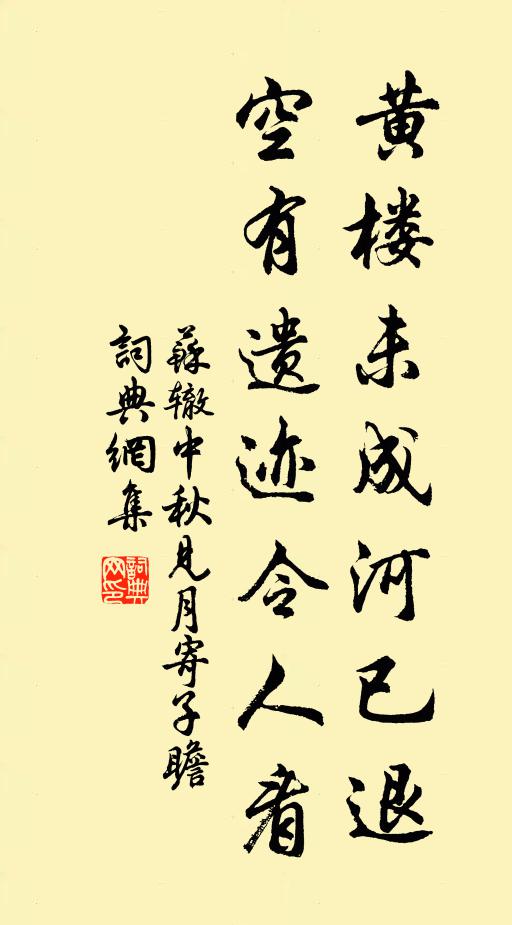 黄楼未成河已退
空有遗迹令人看
蘇辙中秋見月寄子瞻
詞典網集
詞典網印